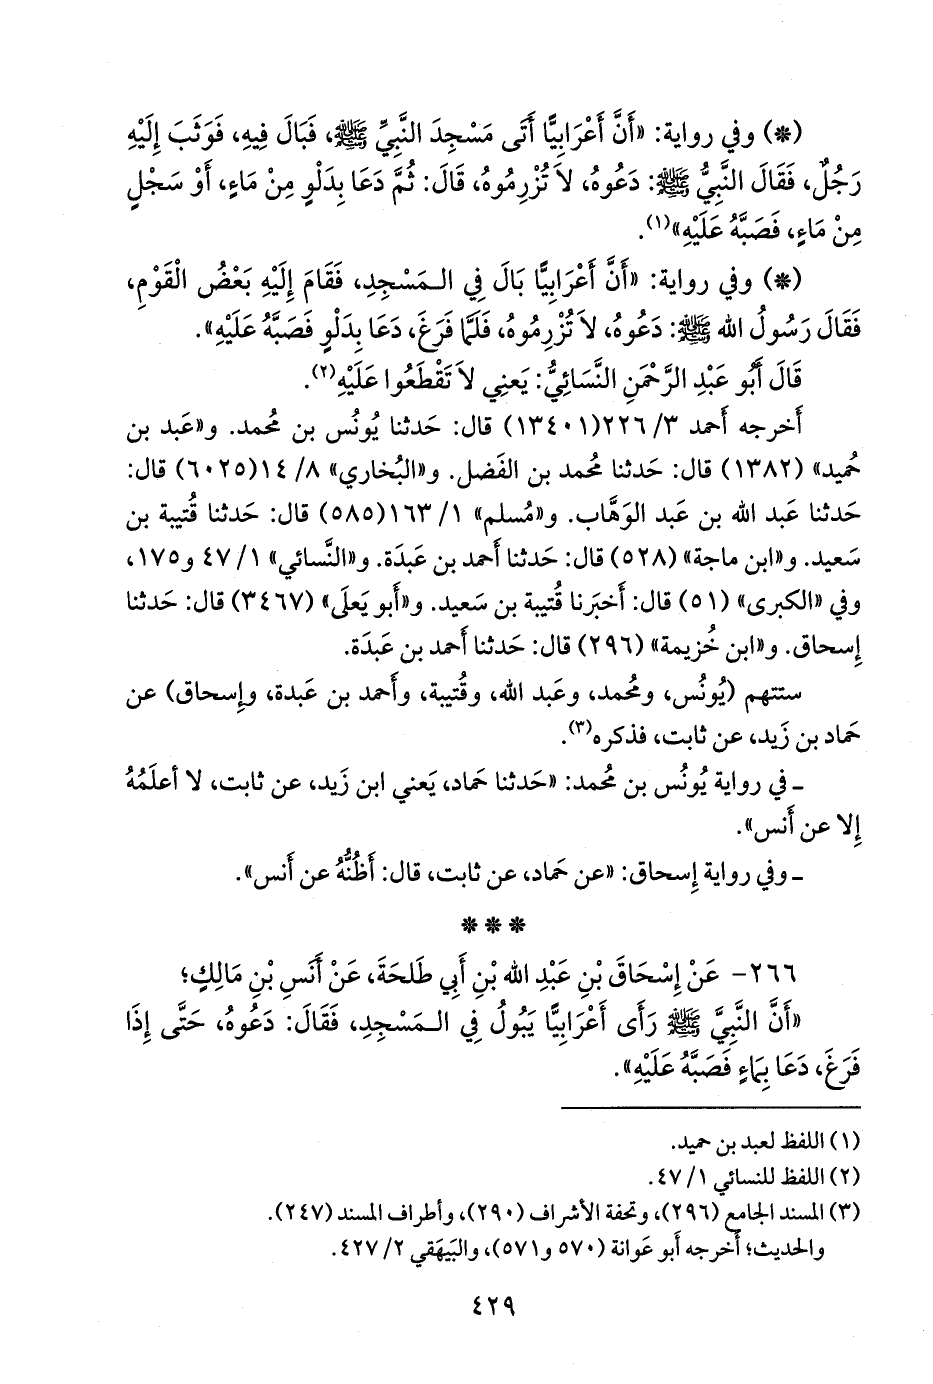 (*) وفي رواية: «أَنَّ أَعْرَابِيًّا أَتَى مَسْجِدَ النَّبِيِّ ﷺ، فَبَالَ فِيهِ، فَوَثَبَ إِلَيْهِ
رَجُلٌ، فَقَالَ النَّبِيُّ ﷺ: دَعُوهُ، لاَ تُزْرِمُوهُ، قَالَ: ثُمَّ دَعَا بِدَلْوٍ مِنْ مَاءٍ، أَوْ سَجْلٍ
مِنْ مَاءٍ، فَصَبَّهُ عَلَيْهِ»(١).
(*) وفي رواية: «أَنَّ أَعْرَابِيًّا بَالَ فِي الـمَسْجِدِ، فَقَامَ إِلَيْهِ بَعْضُ الْقَوْمِ،
فَقَالَ رَسُولُ الله ﷺ: دَعُوهُ، لاَ تُزْرِمُوهُ، فَلَمَّا فَرَغَ، دَعَا بِدَلْوٍ فَصَبَّهُ عَلَيْهِ».
قَالَ أَبُو عَبْدِ الرَّحْمَنِ النَّسَائِيُّ: يَعنِي لاَ تَقْطَعُوا عَلَيْهِ(٢).
أَخرجه أَحمد ٣/ ٢٢٦(١٣٤٠١) قال: حَدثنا يُونُس بن مُحمد. و«عَبد بن
حُميد» (١٣٨٢) قال: حَدثنا مُحمد بن الفَضل. و«البُخاري» ٨/ ١٤(٦٠٢٥) قال:
حَدثنا عَبد الله بن عَبد الوَهَّاب. و«مُسلم» ١/ ١٦٣(٥٨٥) قال: حَدثنا قُتيبة بن
سَعيد. و«ابن ماجة» (٥٢٨) قال: حَدثنا أَحمد بن عَبدَة. و«النَّسائي» ١/ ٤٧ و١٧٥،
وفي «الكبرى» (٥١) قال: أَخبَرنا قُتيبة بن سَعيد. و«أَبو يَعلَى» (٣٤٦٧) قال: حَدثنا
إِسحاق. و«ابن خُزيمة» (٢٩٦) قال: حَدثنا أَحمد بن عَبدَة.
ستتهم (يُونُس، ومُحمد، وعَبد الله، وقُتيبة، وأَحمد بن عَبدة، وإِسحاق) عن
حَماد بن زَيد، عن ثابت، فذكره(٣).
ـ في رواية يُونُس بن مُحمد: «حَدثنا حَماد، يَعني ابن زَيد، عن ثابت، لا أعلَمُهُ
إِلا عن أَنس».
ـ وفي رواية إِسحاق: «عن حَماد، عن ثابت، قال: أَظُنُّهُ عن أَنس».
* * *
٢٦٦- عَنْ إِسْحَاقَ بْنِ عَبْدِ الله بْنِ أَبِي طَلحَةَ، عَنْ أَنَسِ بْنِ مَالِكٍ؛
«أَنَّ النَّبِيَّ ﷺ رَأَى أَعْرَابِيًّا يَبُولُ فِي الـمَسْجِدِ، فَقَالَ: دَعُوهُ، حَتَّى إِذَا
فَرَغَ، دَعَا بِمَاءٍ فَصَبَّهُ عَلَيْهِ».
(١) اللفظ لعبد بن حميد.
(٢) اللفظ للنسائي ١/ ٤٧.
(٣) المسند الجامع (٢٩٦)، وتحفة الأشراف (٢٩٠)، وأطراف المسند (٢٤٧).
والحديث؛ أَخرجه أَبو عَوانة (٥٧٠ و٥٧١)، والبَيهَقي ٢/ ٤٢٧.
٤٢٩